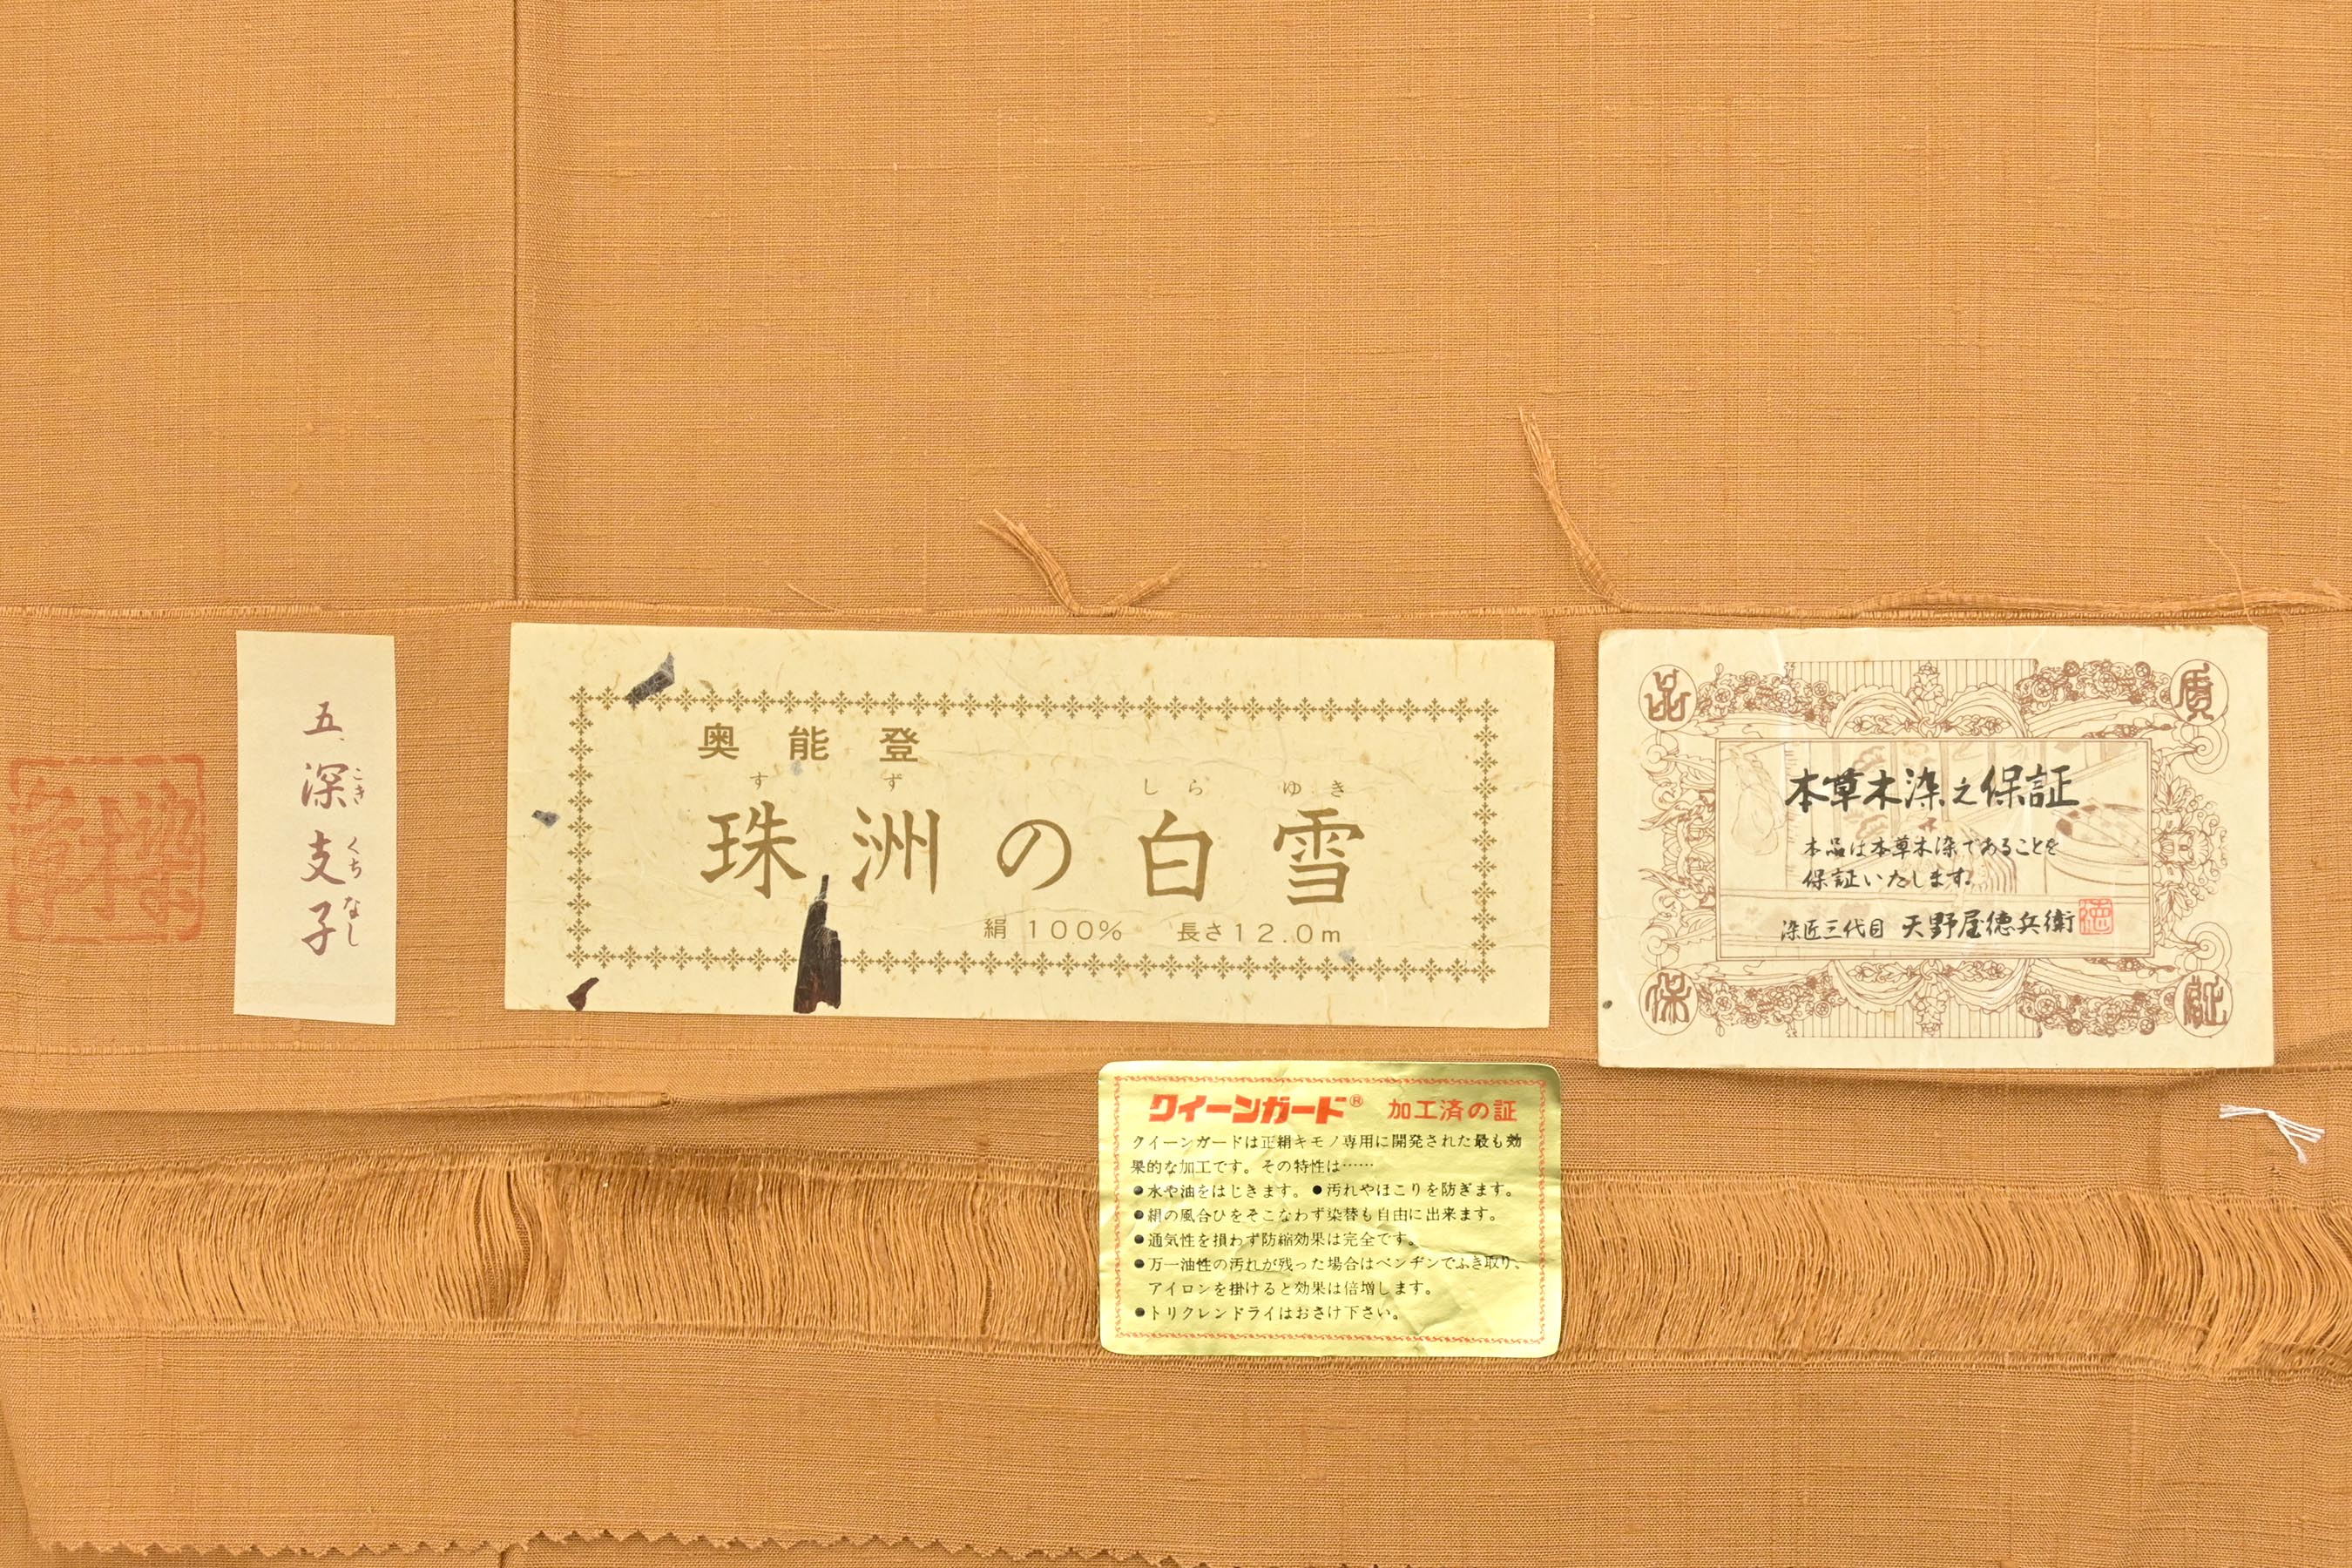 五
深支子
こき くちなし
奥能登
すず しらゆき
珠洲の白雪
絹 100% 長さ12.0m
品質
本草木染之保証
本品は本草木染であることを
保証いたします。
染匠三代目 天野屋徳兵衛
徳
保証
クイーンガード® 加工済の証
クイーンガードは正絹キモノ専用に開発された最も効
果的な加工です。その特性は……
●水や油をはじきます。●汚れやほこりを防ぎます。
●絹の風合ひをそこなわず染替も自由に出来ます。
●通気性を損わず防縮効果は完全です。
●万一油性の汚れが残った場合はベンヂンでふき取り、
アイロンを掛けると効果は倍増します。
●トリクレンドライはおさけ下さい。